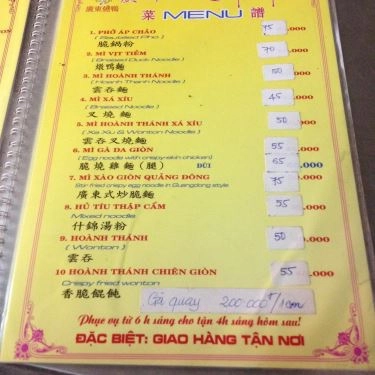 廣東燒鴨
菜 MENU 譜
1. PHỞ ÁP CHẢO 75 .000
脆鍋粉
2. MÌ VỊT TIỀM 70 .000
(Braised Duck Noodle)
燉鴨麵
3. MÌ HOÀNH THÁNH 50 .000
(Hoanh Thanh Noodle)
雲吞麵
4. MÌ XÁ XÍU 45 .000
(Braised Noodle)
叉燒麵
5. MÌ HOÀNH THÁNH XÁ XÍU 50 .000
(Xa Xiu & Wonton Noodle)
雲吞叉燒麵
6. MÌ GÀ DA GIÒN 55 .000
(Egg noodle with crispy skin chicken)
脆燒雞麵 (腿) ĐÙI 65 .000
7. MÌ XÀO GIÒN QUẢNG ĐÔNG 75 .000
Stir fried crispy egg noodle in Guangdong style
廣東式炒脆麵
8. HỦ TÍU THẬP CẨM 55 .000
Mixed noodle
什錦湯粉
9. HOÀNH THÁNH 50 .000
(Wonton)
雲吞
10 HOÀNH THÁNH CHIÊN GIÒN 55 .000
Crispy fried wonton
香脆餛飩
Gà quay 200.000đ/1con
Phục vụ từ 6h sáng cho tận 4h sáng hôm sau!
ĐẶC BIỆT: GIAO HÀNG TẬN NƠI